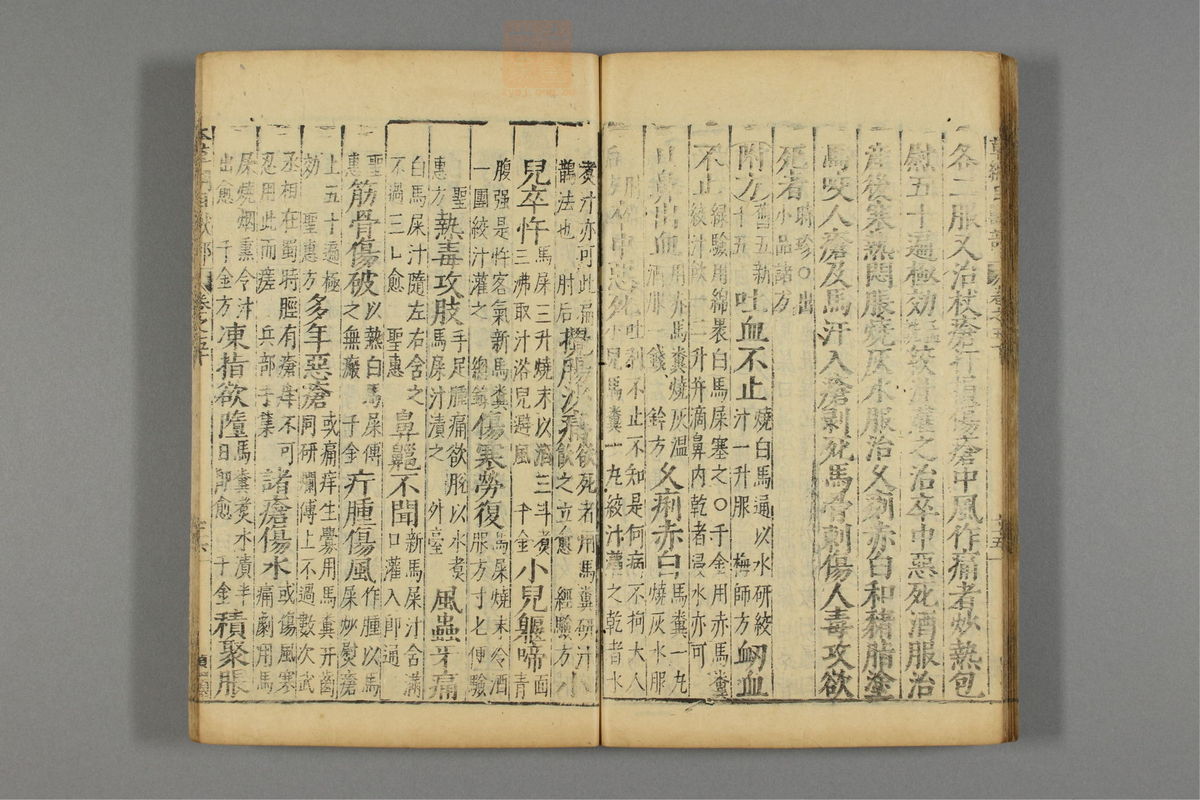 各二服又治杖瘡打損傷瘡中風作痛者炒熱包
慰五十遍極効 絞汁灌之治卒中惡死酒服治
産後寒熱悶脹燒灰水服治久痢赤白和豬脂塗
馬咬人瘡及馬汗入瘡剥死馬骨刺傷人毒攻欲
死者時珍○出
小品諸方
附方舊五新
十五
吐血不止燒白馬通以水研絞
汁一升服 梅師方
衂血
不止錄驗用綿裹白馬屎塞之○千金用赤馬糞
絞汁飲一二升并滴鼻内乾者浸水亦可
口鼻出血用赤馬糞燒灰温
酒服一錢 鈐方
久痢赤白馬糞一丸
燒灰水服
卒中惡死吐利不止不知是何病不拘大人
小兒馬糞一丸絞汁灌之乾者水
煑汁亦可此扁
鵲法也 肘后
攪腸沙痛欲死者用馬糞研汁
飲之立愈 經驗方
小
兒卒忤馬屎三升燒末以酒三斗煑
三沸取汁浴兒避風 千金
小兒軀啼面青
腹强是忤客氣新馬糞
一團絞汁灌之 總錄
傷寒勞復馬屎燒末冷酒
服方寸匕便驗
聖
惠方
熱毒攻肢手足腫痛欲脫以水煑
馬屎汁漬之 外臺
風蟲牙痛
白馬屎汁隨左右含之
不過三口愈 聖惠
鼻齆不聞新馬屎汁含滿
口灌入即通
聖
惠
筋骨傷破以熱白馬屎傅
之無瘢 千金
疔腫傷風作腫以馬
屎炒熨瘡
上五十遍極
効 聖惠方
多年惡瘡或痛痒生釁用馬糞并齒
同研爛傅上不過數次武
丞相在蜀時脛有瘡痒不可
忍用此而瘥 兵部手集
諸瘡傷水或傷風寒
痛劇用馬
屎燒烟熏令汁
出愈 千金方
凍指欲墮馬糞煑水漬半
日即愈 千金
積聚脹